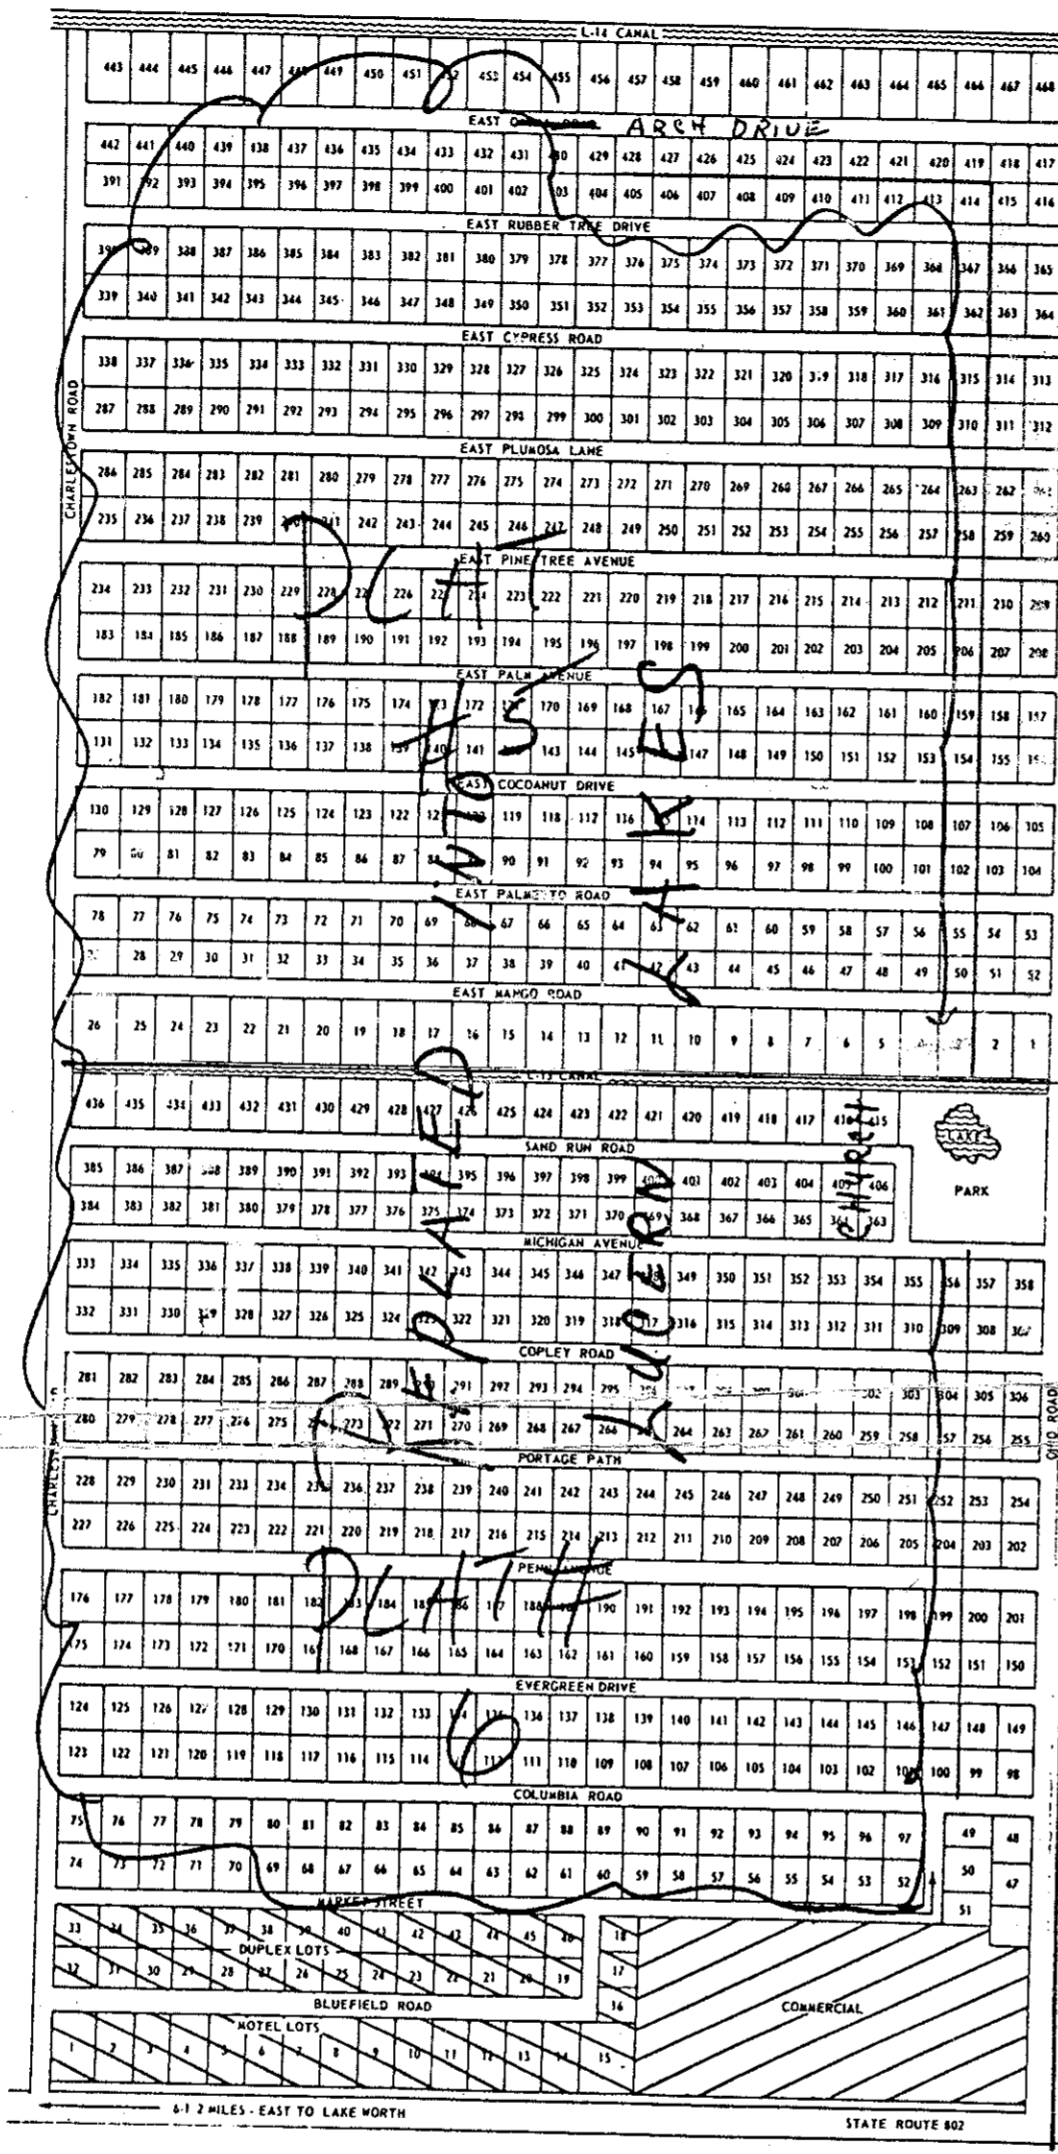 L-14 CANAL
443 444 445 446 447 448 449 450 451 452 453 454 455 456 457 458 459 460 461 462 463 464 465 466 467 468
EAST ARCH DRIVE
442 441 440 439 438 437 436 435 434 433 432 431 430 429 428 427 426 425 424 423 422 421 420 419 418 417
391 392 393 394 395 396 397 398 399 400 401 402 403 404 405 406 407 408 409 410 411 412 413 414 415 416
EAST RUBBER TREE DRIVE
389 388 387 386 385 384 383 382 381 380 379 378 377 376 375 374 373 372 371 370 369 368 367 366 365
339 340 341 342 343 344 345 346 347 348 349 350 351 352 353 354 355 356 357 358 359 360 361 362 363 364
EAST CYPRESS ROAD
338 337 336 335 334 333 332 331 330 329 328 327 326 325 324 323 322 321 320 319 318 317 316 315 314 313
287 288 289 290 291 292 293 294 295 296 297 298 299 300 301 302 303 304 305 306 307 308 309 310 311 312
CHARLESTOWN ROAD
EAST PLUMOSA LANE
286 285 284 283 282 281 280 279 278 277 276 275 274 273 272 271 270 269 268 267 266 265 264 263 262
235 236 237 238 239 241 242 243 244 245 246 247 248 249 250 251 252 253 254 255 256 257 258 259 260
PLAT
EAST PINE TREE AVENUE
234 233 232 231 230 229 228 226 223 222 221 220 219 218 217 216 215 214 213 212 211 210 209
183 184 185 186 187 188 189 190 191 192 193 194 195 196 197 198 199 200 201 202 203 204 205 206 207 208
EAST PALM AVENUE
# 5
182 181 180 179 178 177 176 175 174 173 172 170 169 168 167 165 164 163 162 161 160 159 158 157
131 132 133 134 135 136 137 138 139 140 141 143 144 145 147 148 149 150 151 152 153 154 155
EAST COCOANUT DRIVE
130 129 128 127 126 125 124 123 122 119 118 117 116 114 113 112 111 110 109 108 107 106 105
79 80 81 82 83 84 85 86 87 88 90 91 92 93 94 95 96 97 98 99 100 101 102 103 104
EAST PALMETTO ROAD
78 77 76 75 74 73 72 71 70 69 68 67 66 65 64 63 62 61 60 59 58 57 56 55 54 53
28 29 30 31 32 33 34 35 36 37 38 39 40 41 42 43 44 45 46 47 48 49 50 51 52
EAST MANGO ROAD
26 25 24 23 22 21 20 19 18 17 16 15 14 13 12 11 10 9 8 7 6 5 2 1
L-13 CANAL
436 435 434 433 432 431 430 429 428 427 426 425 424 423 422 421 420 419 418 417 416 415
LAKE
PARK
SAND RUN ROAD
385 386 387 388 389 390 391 392 393 394 395 396 397 398 399 400 401 402 403 404 405 406
384 383 382 381 380 379 378 377 376 375 374 373 372 371 370 369 368 367 366 365 364 363
CHURCH
MICHIGAN AVENUE
333 334 335 336 337 338 339 340 341 342 343 344 345 346 347 348 349 350 351 352 353 354 355 356 357 358
332 331 330 329 328 327 326 325 324 323 322 321 320 319 318 317 316 315 314 313 312 311 310 309 308 307
COPLEY ROAD
281 282 283 284 285 286 287 288 289 290 291 292 293 294 295 302 303 304 305 306
280 279 278 277 276 275 273 272 271 270 269 268 267 266 264 263 262 261 260 259 258 257 256 255
OHIO ROAD
REPLATED INTO
LAKES
PORTAGE PATH
228 229 230 231 232 233 234 235 236 237 238 239 240 241 242 243 244 245 246 247 248 249 250 251 252 253 254
227 226 225 224 223 222 221 220 219 218 217 216 215 214 213 212 211 210 209 208 207 206 205 204 203 202
PENN AVENUE
PLAT #
176 177 178 179 180 181 182 183 184 185 186 187 188 190 191 192 193 194 195 196 197 198 199 200 201
175 174 173 172 171 170 169 168 167 166 165 164 163 162 161 160 159 158 157 156 155 154 153 152 151 150
EVERGREEN DRIVE
6
124 125 126 127 128 129 130 131 132 133 134 135 136 137 138 139 140 141 142 143 144 145 146 147 148 149
123 122 121 120 119 118 117 116 115 114 112 111 110 109 108 107 106 105 104 103 102 101 100 99 98
COLUMBIA ROAD
75 76 77 78 79 80 81 82 83 84 85 86 87 88 89 90 91 92 93 94 95 96 97 49 48
74 73 72 71 70 69 68 67 66 65 64 63 62 61 60 59 58 57 56 55 54 53 52 50 47
51
MARKET STREET
33 34 35 36 37 38 39 40 41 42 43 44 45 46 18
DUPLEX LOTS
32 31 30 29 28 27 26 25 24 23 22 21 20 19 17
BLUEFIELD ROAD
16
COMMERCIAL
MOTEL LOTS
1 2 3 4 5 6 7 8 9 10 11 12 13 14 15
6-1 2 MILES - EAST TO LAKE WORTH
STATE ROUTE 802